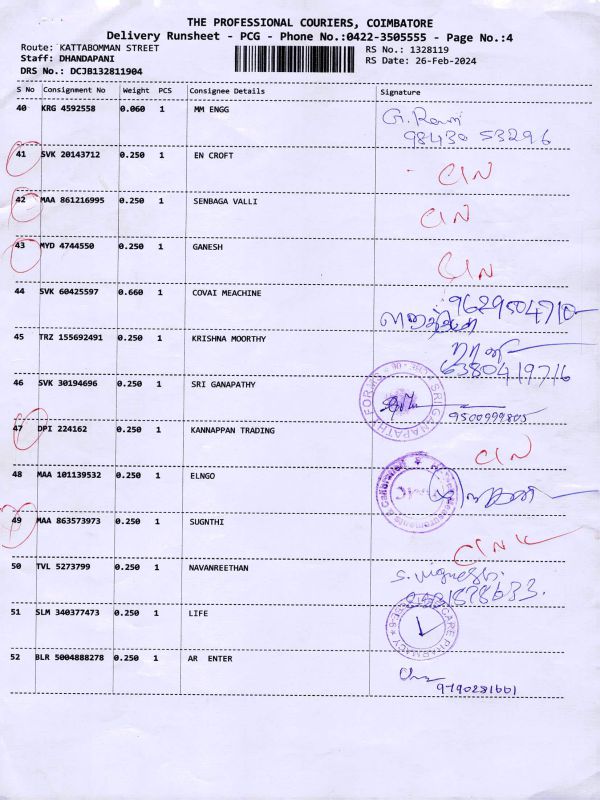 THE PROFESSIONAL COURIERS, COIMBATORE
Delivery Runsheet - PCG - Phone No.:0422-3505555 - Page No.:4
Route: KATTABOMMAN STREET
RS No.: 1328119
Staff: DHANDAPANI
RS Date: 26-Feb-2024
DRS No.: DCJB132811904
S No Consignment No Weight PCS Consignee Details Signature
40 KRG 4592558 0.060 1 MM ENGG G. Ram
98430 53296
41 SVK 20143712 0.250 1 EN CROFT CIN
42 MAA 861216995 0.250 1 SENBAGA VALLI CIN
43 MYD 4744550 0.250 1 GANESH CIN
44 SVK 60425597 0.660 1 COVAI MEACHINE 9629504710
45 TRZ 155692491 0.250 1 KRISHNA MOORTHY
6380419716
46 SVK 30194696 0.250 1 SRI GANAPATHY SRI GANAPATHY FORMS
9500999805
47 DPI 224162 0.250 1 KANNAPPAN TRADING CIN
48 MAA 101139532 0.250 1 ELNGO
49 MAA 863573973 0.250 1 SUGNTHI
50 TVL 5273799 0.250 1 NAVANREETHAN
51 SLM 340377473 0.250 1 LIFE CARE PHARMACY
52 BLR 5004888278 0.250 1 AR ENTER
9790281661